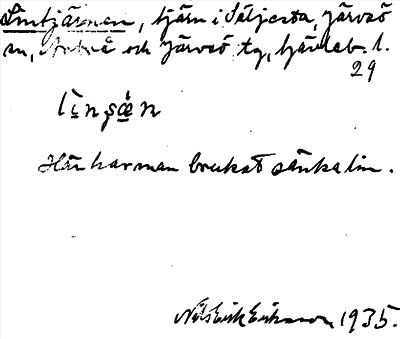 Lintjärnen, tjärn i Säljesta, Järvsö
sn, Arbrå och Järvsö tg, Gävleb. l.
29
lìnʂæ̀n
Här har man brukat sänka lin.
Nils Erik Eriksson 1935.